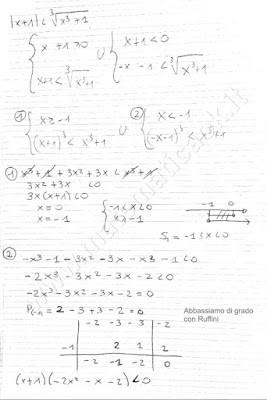 |x+1| < ∛x³+1
{ x+1 ≥ 0
x+1 < ∛x³+1
∪ { x+1 < 0
-x-1 < ∛x³+1
① { x ≥ -1
(x+1)³ < x³+1
∪ ② { x < -1
(-x-1)³ < x³+1
① x³+1+3x²+3x < x³+1
3x²+3x < 0
3x(x+1) < 0
x=0
x=-1
{ -1<x<0
x ≥ -1
-1 0
S₁ = -1<x<0
② -x³-1-3x²-3x-x³-1<0
-2x³-3x²-3x-2<0
-2x³-3x²-3x-2=0
P(-1) = 2-3+3-2=0
Abbassiamo di grado
con Ruffini
-2 -3 -3 -2
-1 2 1 2
-2 -1 -2 0
(x+1)(-2x²-x-2)<0